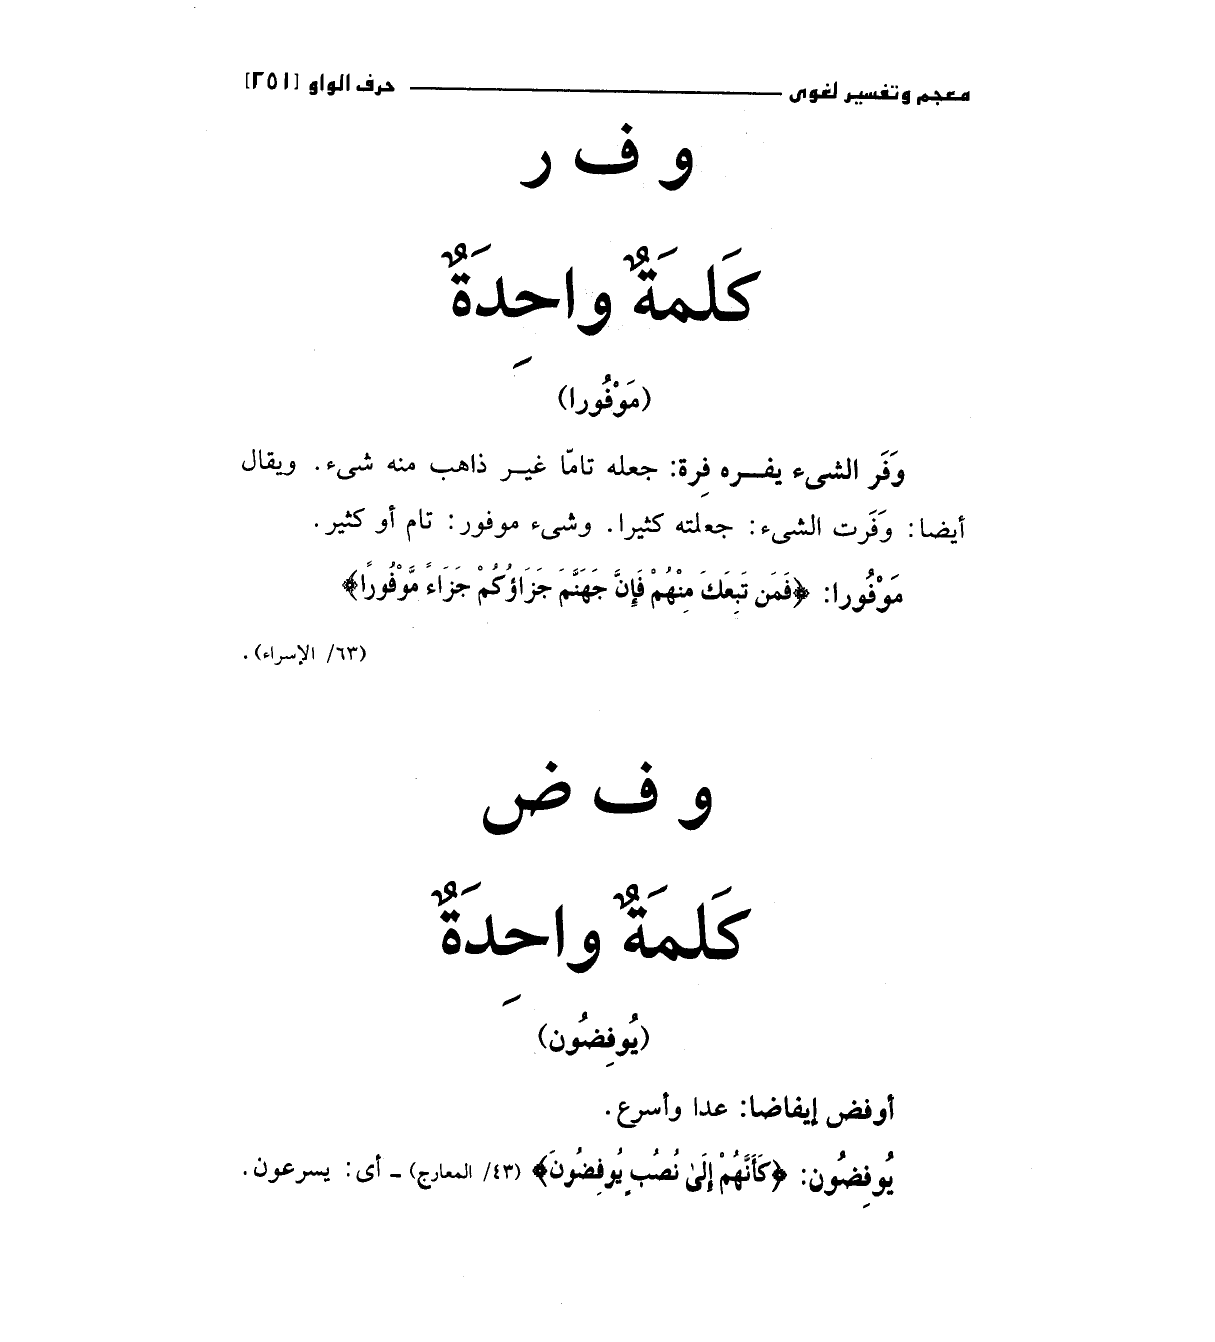 معجم وتفسير لغوى ــــــــــ حرف الواو [٢٥١]
و ف ر
كَلمَةٌ واحِدَةٌ
(مَوْفُورا)
وَفَر الشىء يفـره فِرة: جعله تامّا غير ذاهب منه شىء. ويقال
أيضا: وَفَرت الشىء: جعلته كثيرا. وشىء موفور: تام أو كثير.
مَوْفُورا: ﴿فَمَن تَبِعَكَ مِنْهُمْ فَإِنَّ جَهَنَّمَ جَزَاؤُكُمْ جَزَاءً مَّوْفُورًا﴾
(٦٣/ الإسراء).
و ف ض
كَلمَةٌ واحِدَةٌ
(يُوفِضُون)
أوفض إيفاضا: عدا وأسرع.
يُوفِضُون: ﴿كَأَنَّهُمْ إِلَىٰ نُصُبٍ يُوفِضُونَ﴾ (٤٣/ المعارج) ـ أى: يسرعون.